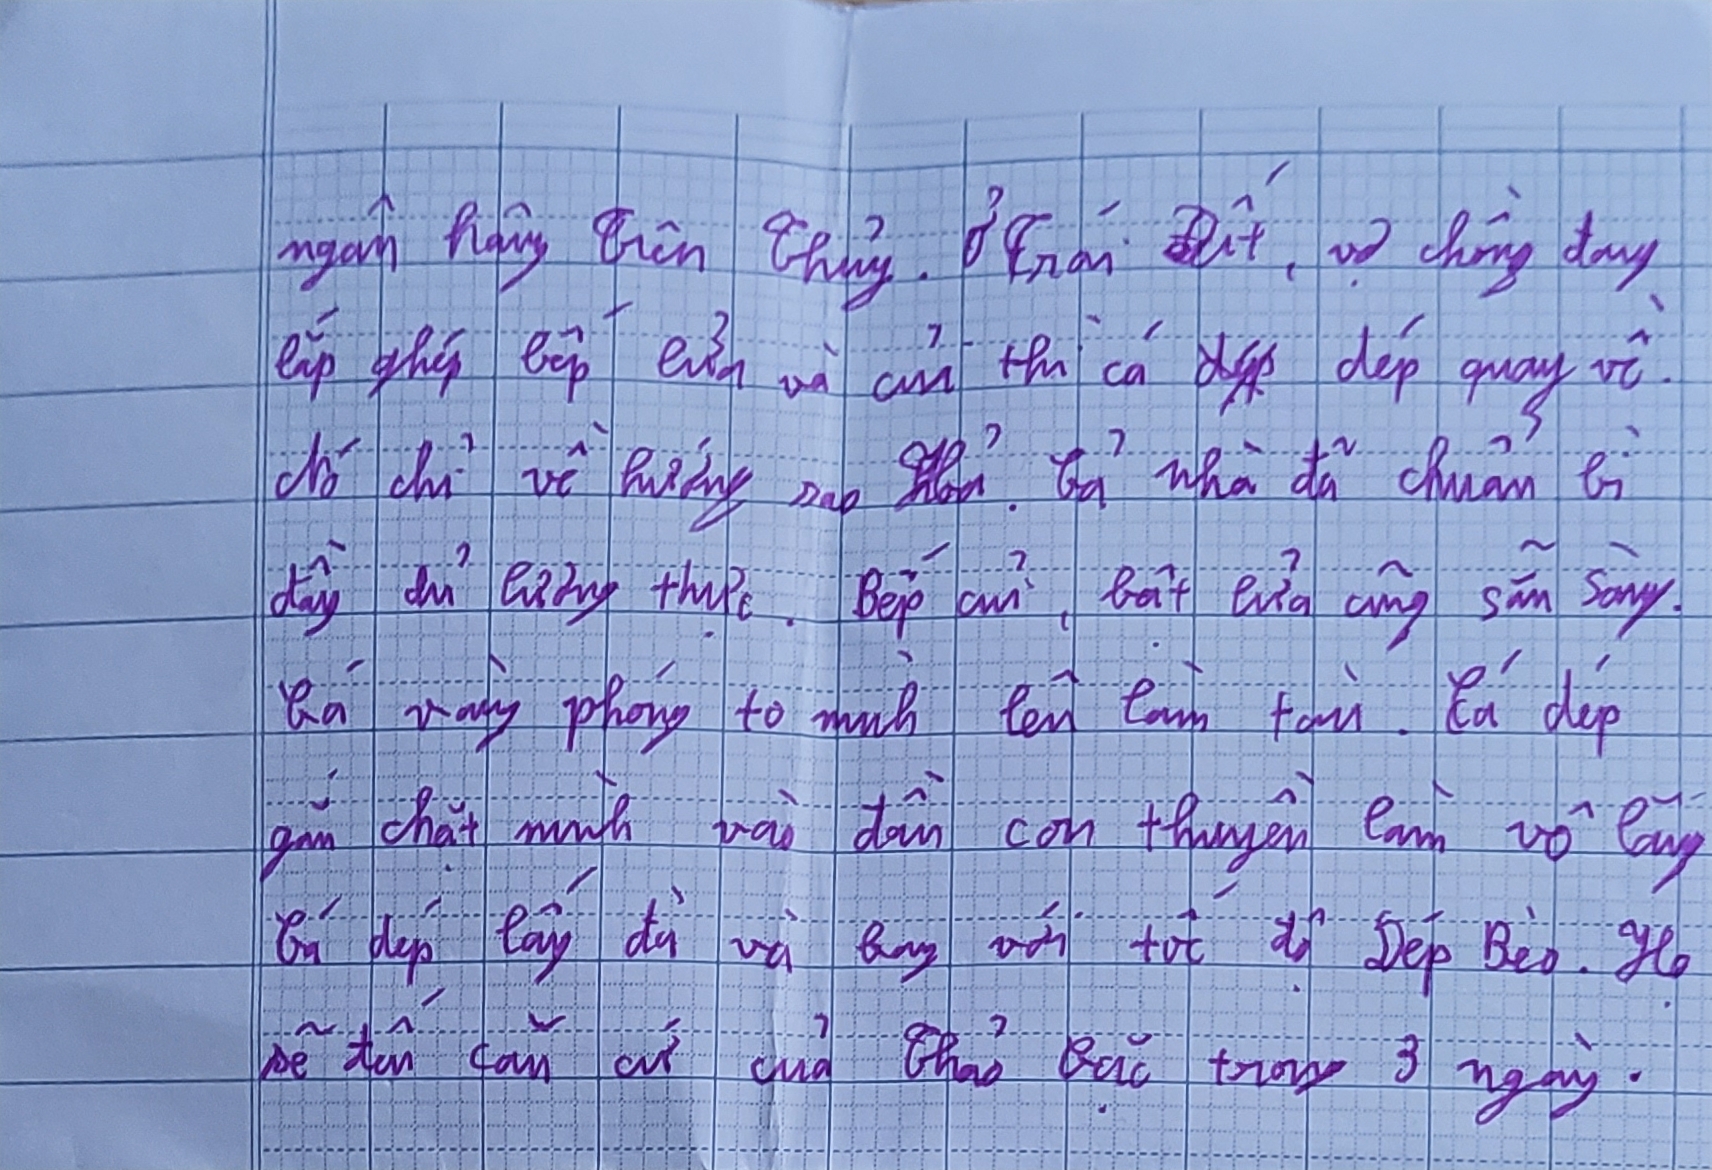 ngân hàng trên Thủy. Ở Trái Đất, vợ chồng đang
lắp ghép bếp lửa và củi thì cá dép quay về.
chó chỉ về hướng sao Hỏa. Cả nhà đã chuẩn bị
đầy đủ lương thực. Bếp củi, bật lửa cũng sẵn sàng.
Cá vàng phóng to mình lên làm tàu. Cá dép
gắn chặt mình vào dần con thuyền làm vô lăng
Cá dép lấy đà và bay với tốc độ Dép Bèo. Họ
sẽ đến căn cứ của Thảo Bạc trong 3 ngày.